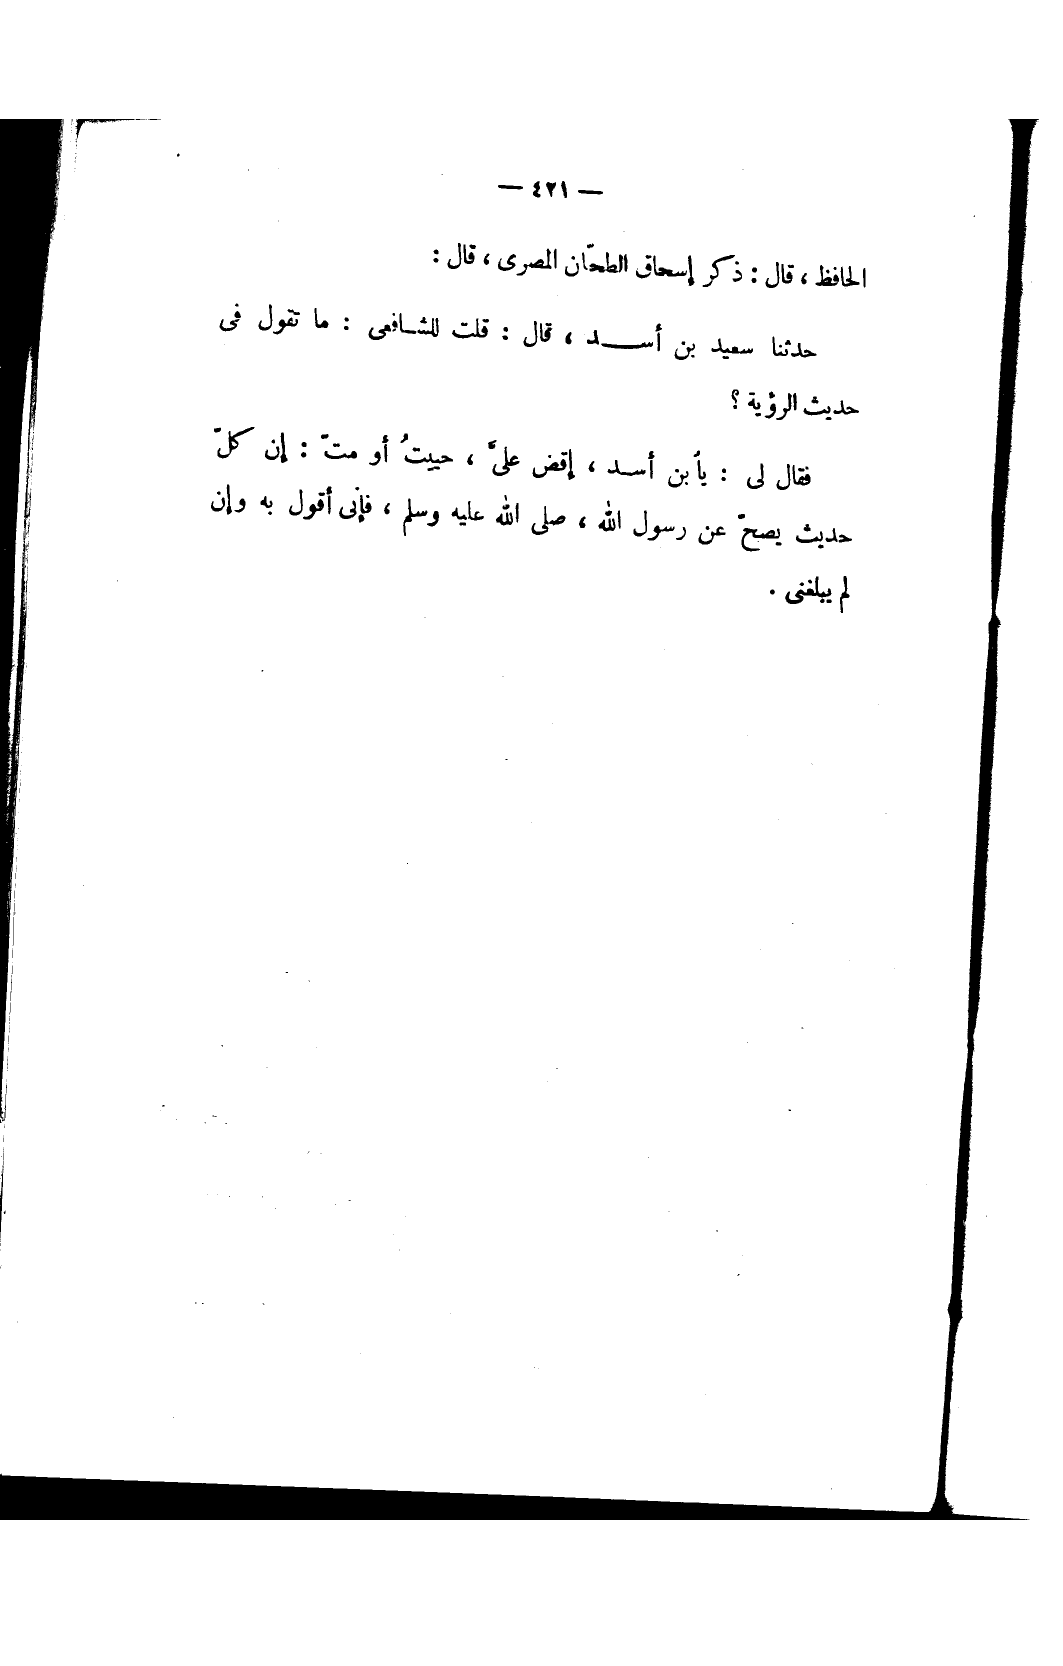 — ٤٢١ —
الحافظ ، قال : ذكر إسحاق الطحّان المصرى ، قال :
حدثنا سعيد بن أســـد ، قال : قلت للشـافعى : ما تقول فى
حديث الرؤية ؟
فقال لى : يأبن أسـد ، إقض علىَّ ، حييتُ أو متّ : إن كلّ
حديث يصحّ عن رسول الله ، صلى الله عليه وسلم ، فإنى أقول به وإن
لم يبلغنى .